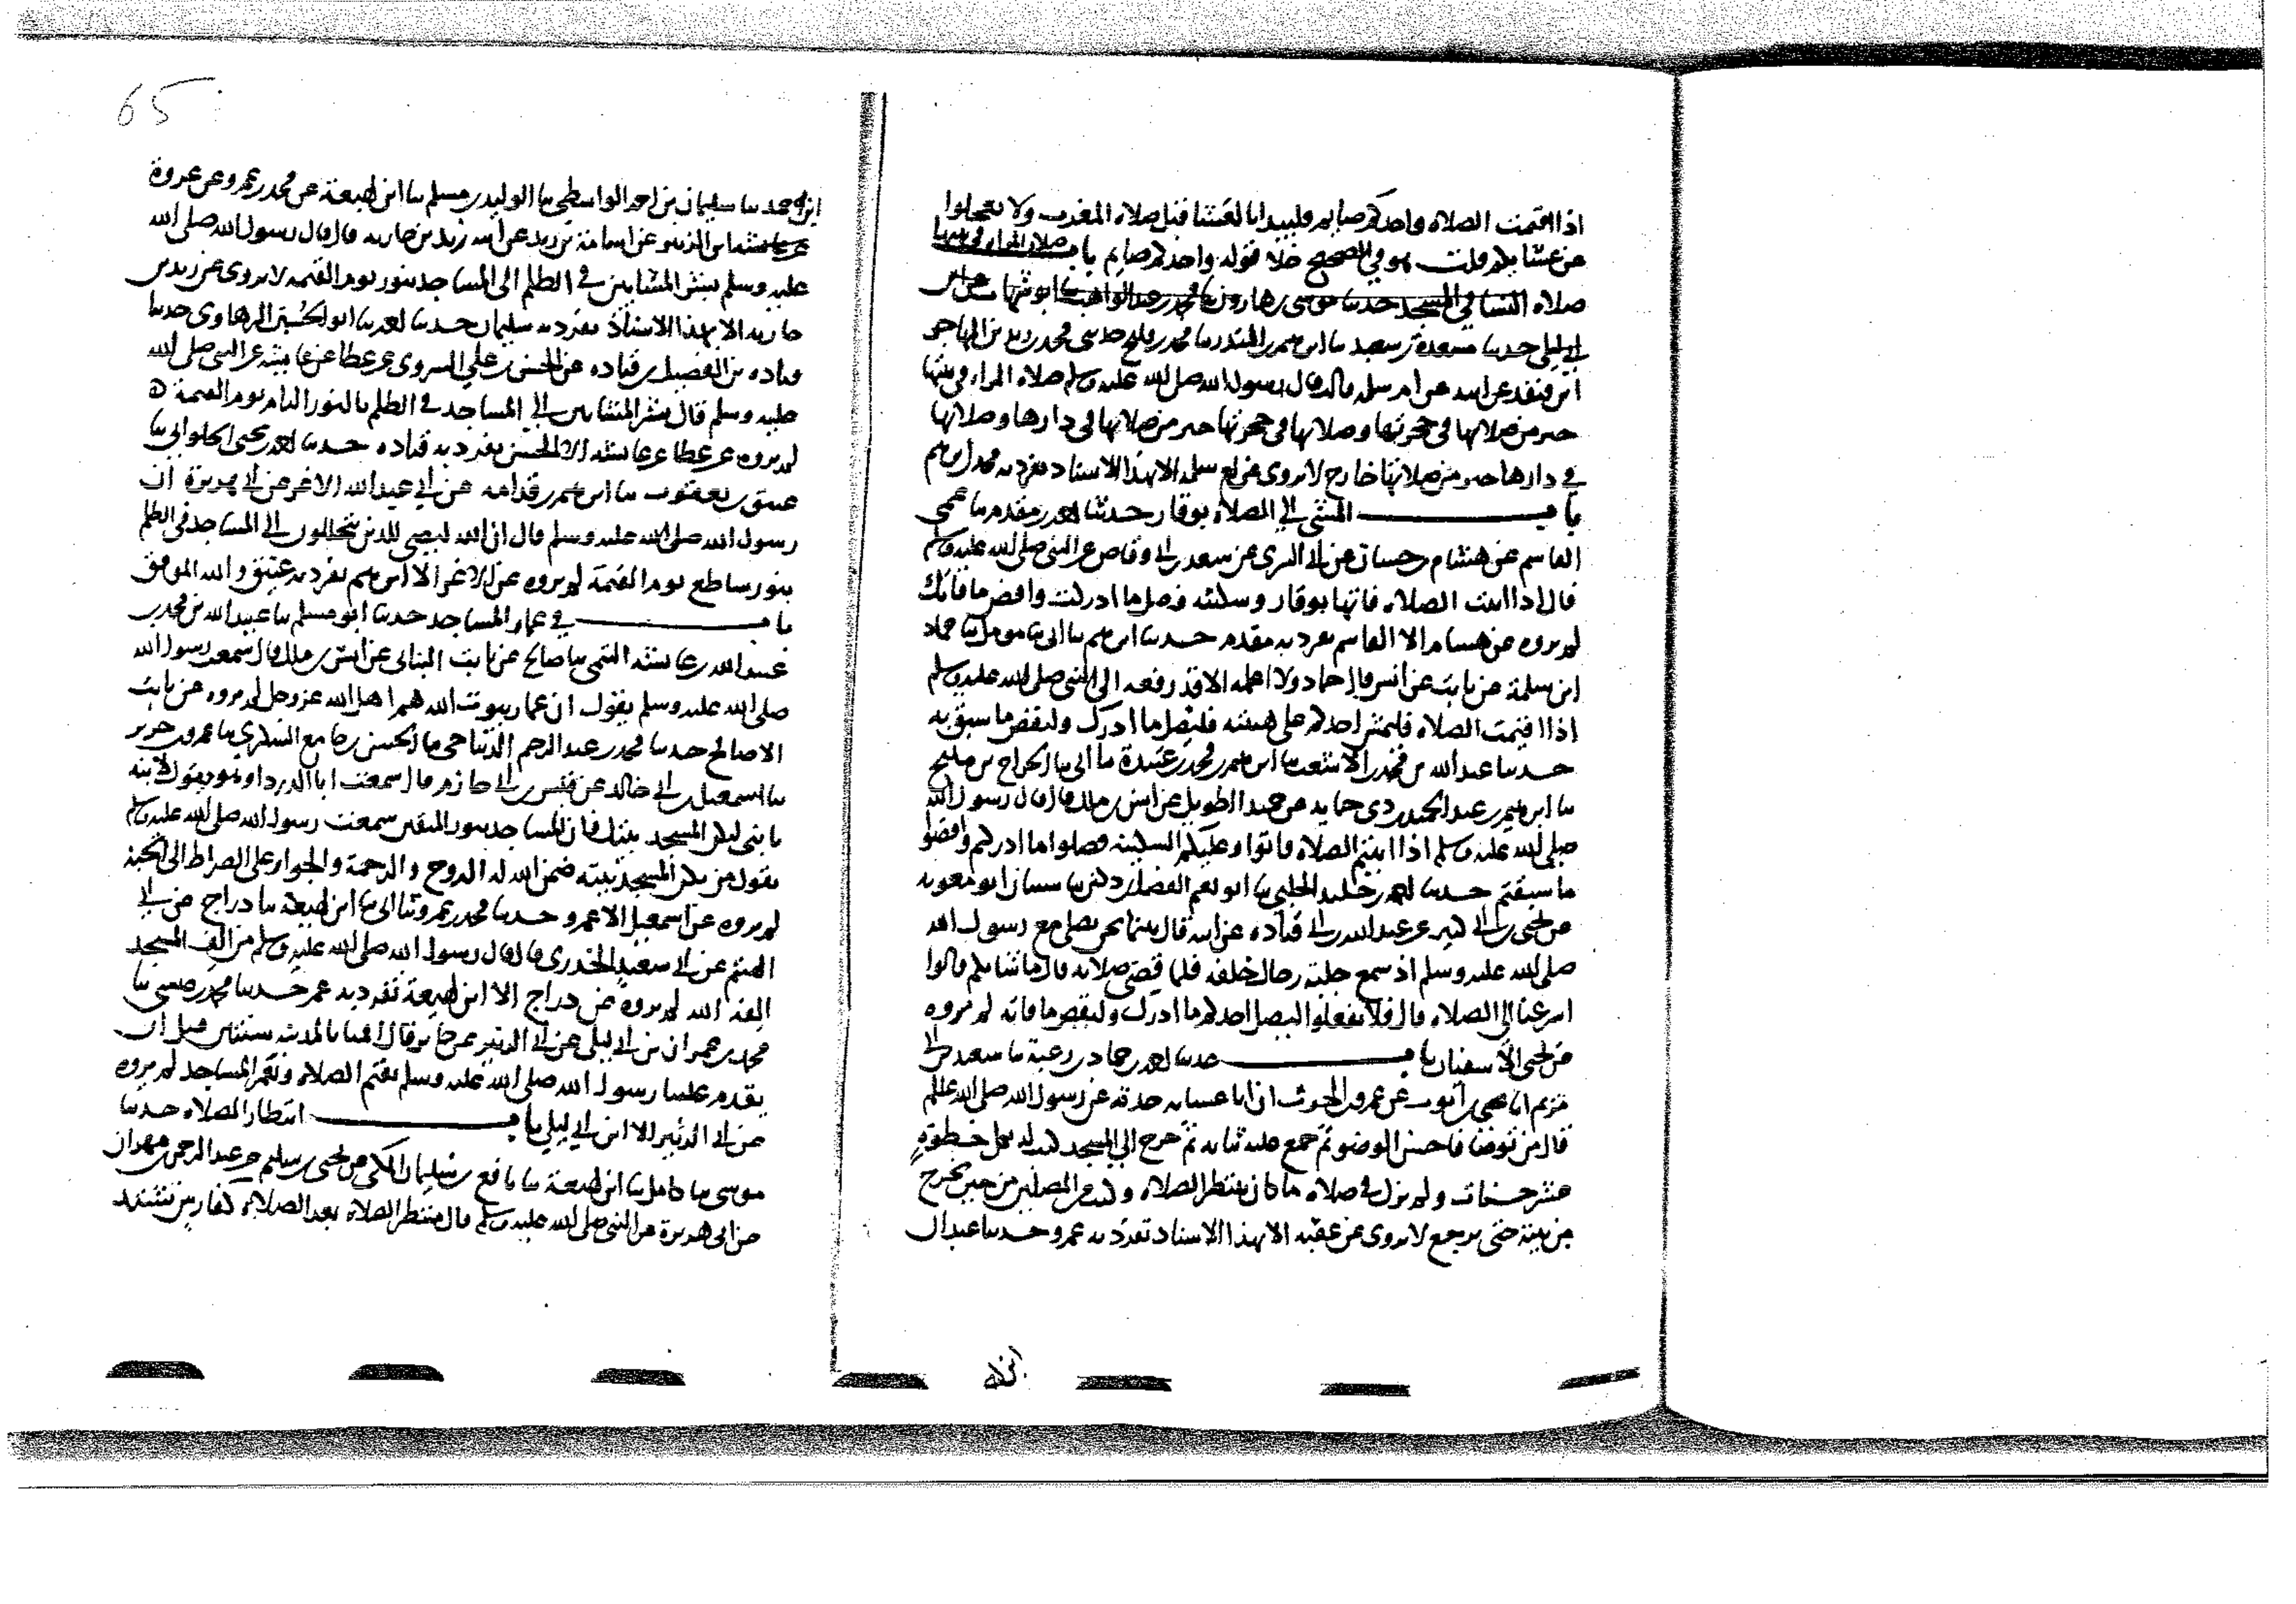 اذا اقيمت الصلاة واحدكم صايم فليبدا بالعشا قبل صلاة المغرب ولا تعجلوا
عن عشايكم قلت هو في الصحيح خلا قوله واحدكم صايم باب صلاة المراة في بيتها
صلاة النسا في المسجد حدثنا موسى بن هارون ثنا محمد بن عبد الواهب ثنا ابو شهاب
ابي ليلى حدثنا مسعدة بن سعيد ثنا ابرهيم بن المنذر ثنا محمد بن فليح حدثني محمد بن زيد بن المهاجر
ابن قنفد عن ابيه عن ام سلمة قالت قال رسول الله صلى الله عليه وسلم صلاة المراة في بيتها
خير من صلاتها في حجرتها وصلاتها في حجرتها خير من صلاتها في دارها وصلاتها
في دارها خير من صلاتها خارج لا يروى عن ام سلمة الا بهذا الاسناد تفرد به محمد ابرهيم
باب المشي الى الصلاة بوقار حدثنا احمد بن مقدم ثنا عمي
القاسم عن هشام بن حسان عن ابي السري عن سعد بن ابي وقاص عن النبي صلى الله عليه وسلم
قال اذا اتيت الصلاة فاتها بوقار وسكينة فصل ما ادركت واقض ما فاتك
لم يروه عن هشام الا القاسم تفرد به مقدم حدثنا ابرهيم ثنا ابي ثنا مومل ثنا حماد
ابن سلمة عن ثابت عن انس قال حماد ولا اعلمه الا قد رفعه الى النبي صلى الله عليه وسلم
اذا اقيمت الصلاة فليمش احدكم على هينته فليصل ما ادرك وليقض ما سبق به
حدثنا عبد الله بن محمد بن الاشعث ثنا ابرهيم بن محمد بن عبيدة ثنا ابي ثنا الجراح بن مليح
ثنا ابرهيم بن عبد الحميد بن ذي حماية عن حميد الطويل عن انس بن ملك قال قال رسول الله
صلى الله عليه وسلم اذا اتيتم الصلاة فاتوا وعليكم السكينة فصلوا ما ادركتم واقضوا
ما سبقتم حدثنا احمد بن خليد الحلبي ثنا ابو نعيم الفضل بن دكين ثنا شيبان ابو معوية
عن يحيى بن ابي كثير عن عبد الله بن ابي قتادة عن ابيه قال بينما نحن نصلي مع رسول الله
صلى الله عليه وسلم اذ سمع جلبة رجال خلفه فلما قضى صلاته قال ما شانكم قالوا
اسرعنا الى الصلاة قال فلا تفعلوا ليصل احدكم ما ادرك وليقض ما فاته لم يروه
عن يحيى الا شيبان باب حدثنا احمد بن حماد بن زغبة ثنا سعيد بن ابي
مريم انا يحيى بن ايوب عن عمرو بن الحرث ان ابا عشانه حدثه عن رسول الله صلى الله عليه وسلم
قال من توضا فاحسن الوضو ثم جمع عليه ثيابه ثم خرج الى المسجد كتب له بكل خطوة
عشر حسنات ولم يزل في صلاة ما كان ينتظر الصلاة وكتب من المصلين من حين يخرج
من بيته حتى يرجع لا يروى عن عقبة الا بهذا الاسناد تفرد به عمرو حدثنا عبدان
65
ابن احمد ثنا سليمان بن احمد الواسطي ثنا الوليد بن مسلم ثنا ابن لهيعة عن محمد بن عمرو عن عروة
بن الزبير عن اسامة بن زيد عن ابيه زيد بن حارثة قال قال رسول الله صلى الله
عليه وسلم بشر المشايين في الظلم الى المساجد بنور يوم القيمة لا يروى عن زيد بن
حارثة الا بهذا الاسناد تفرد به سليمان حدثنا احمد ثنا ابو الحسين الرهاوي حدثنا
قتادة بن الفضيل بن قتادة عن الحسن بن علي السروي عن عطا عن عايشة عن النبي صلى الله
عليه وسلم قال بشر المشايين الى المساجد في الظلم بالنور التام يوم القيمة
لم يروه عن عطا عن عايشة الا الحسن تفرد به قتادة حدثنا احمد بن يحيى الحلواني ثنا
عتيق بن يعقوب ثنا ابرهيم بن قدامة عن ابي عبد الله الاغر عن ابي هريرة ان
رسول الله صلى الله عليه وسلم قال ان الله ليضي للذين يتخللون الى المساجد في الظلم
بنور ساطع يوم القيمة لم يروه عن الاغر الا ابرهيم تفرد به عتيق والله الموفق
باب في عمار المساجد حدثنا ابو مسلم ثنا عبيد الله بن محمد بن
عبيد الله بن عايشة التيمي ثنا صالح عن ثابت البناني عن انس بن ملك قال سمعت رسول الله
صلى الله عليه وسلم يقول ان عمار بيوت الله هم اهل الله عز وجل لم يروه عن ثابت
الا صالح حدثنا محمد بن عبد الرحيم الديباجي ثنا الحسن بن جامع السكري ثنا عمرو بن جرير
ثنا اسمعيل بن ابي خالد عن قيس بن ابي حازم قال سمعت ابا الدرداء وهو يقول لابنه
يا بني ليكن المسجد بيتك فان المساجد بيوت المتقين سمعت رسول الله صلى الله عليه وسلم
يقول من يكن المسجد بيته ضمن الله له الروح والرحمة والجواز على الصراط الى الجنة
لم يروه عن اسمعيل الا عمرو حدثنا محمد بن عمرو ثنا ابي ثنا ابن لهيعة ثنا دراج عن ابي
الهيثم عن ابي سعيد الخدري قال قال رسول الله صلى الله عليه وسلم من الف المسجد
الفه الله لم يروه عن دراج الا ابن لهيعة تفرد به عمرو حدثنا محمد بن عيسى ثنا
محمد بن عمران بن ابي ليلى عن ابي الزبير عن جابر قال اقمنا بالمدينة سنتين قبل ان
يقدم علينا رسول الله صلى الله عليه وسلم نقيم الصلاة ونعمر المساجد لم يروه
عن ابي الزبير الا ابن ابي ليلى باب انتظار الصلاة حدثنا
موسى ثنا كامل ثنا ابن لهيعة ثنا نافع بن سليمان المكي عن يحيى بن سليم عن عبد الرحمن بن مهران
عن ابي هريرة عن النبي صلى الله عليه وسلم قال منتظر الصلاة بعد الصلاة كفارس تشتد